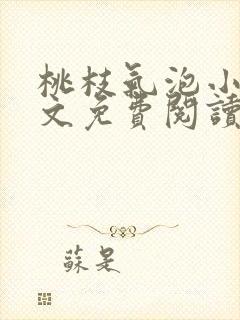 桃枝氣泡小
文免費閱讀
蘇是